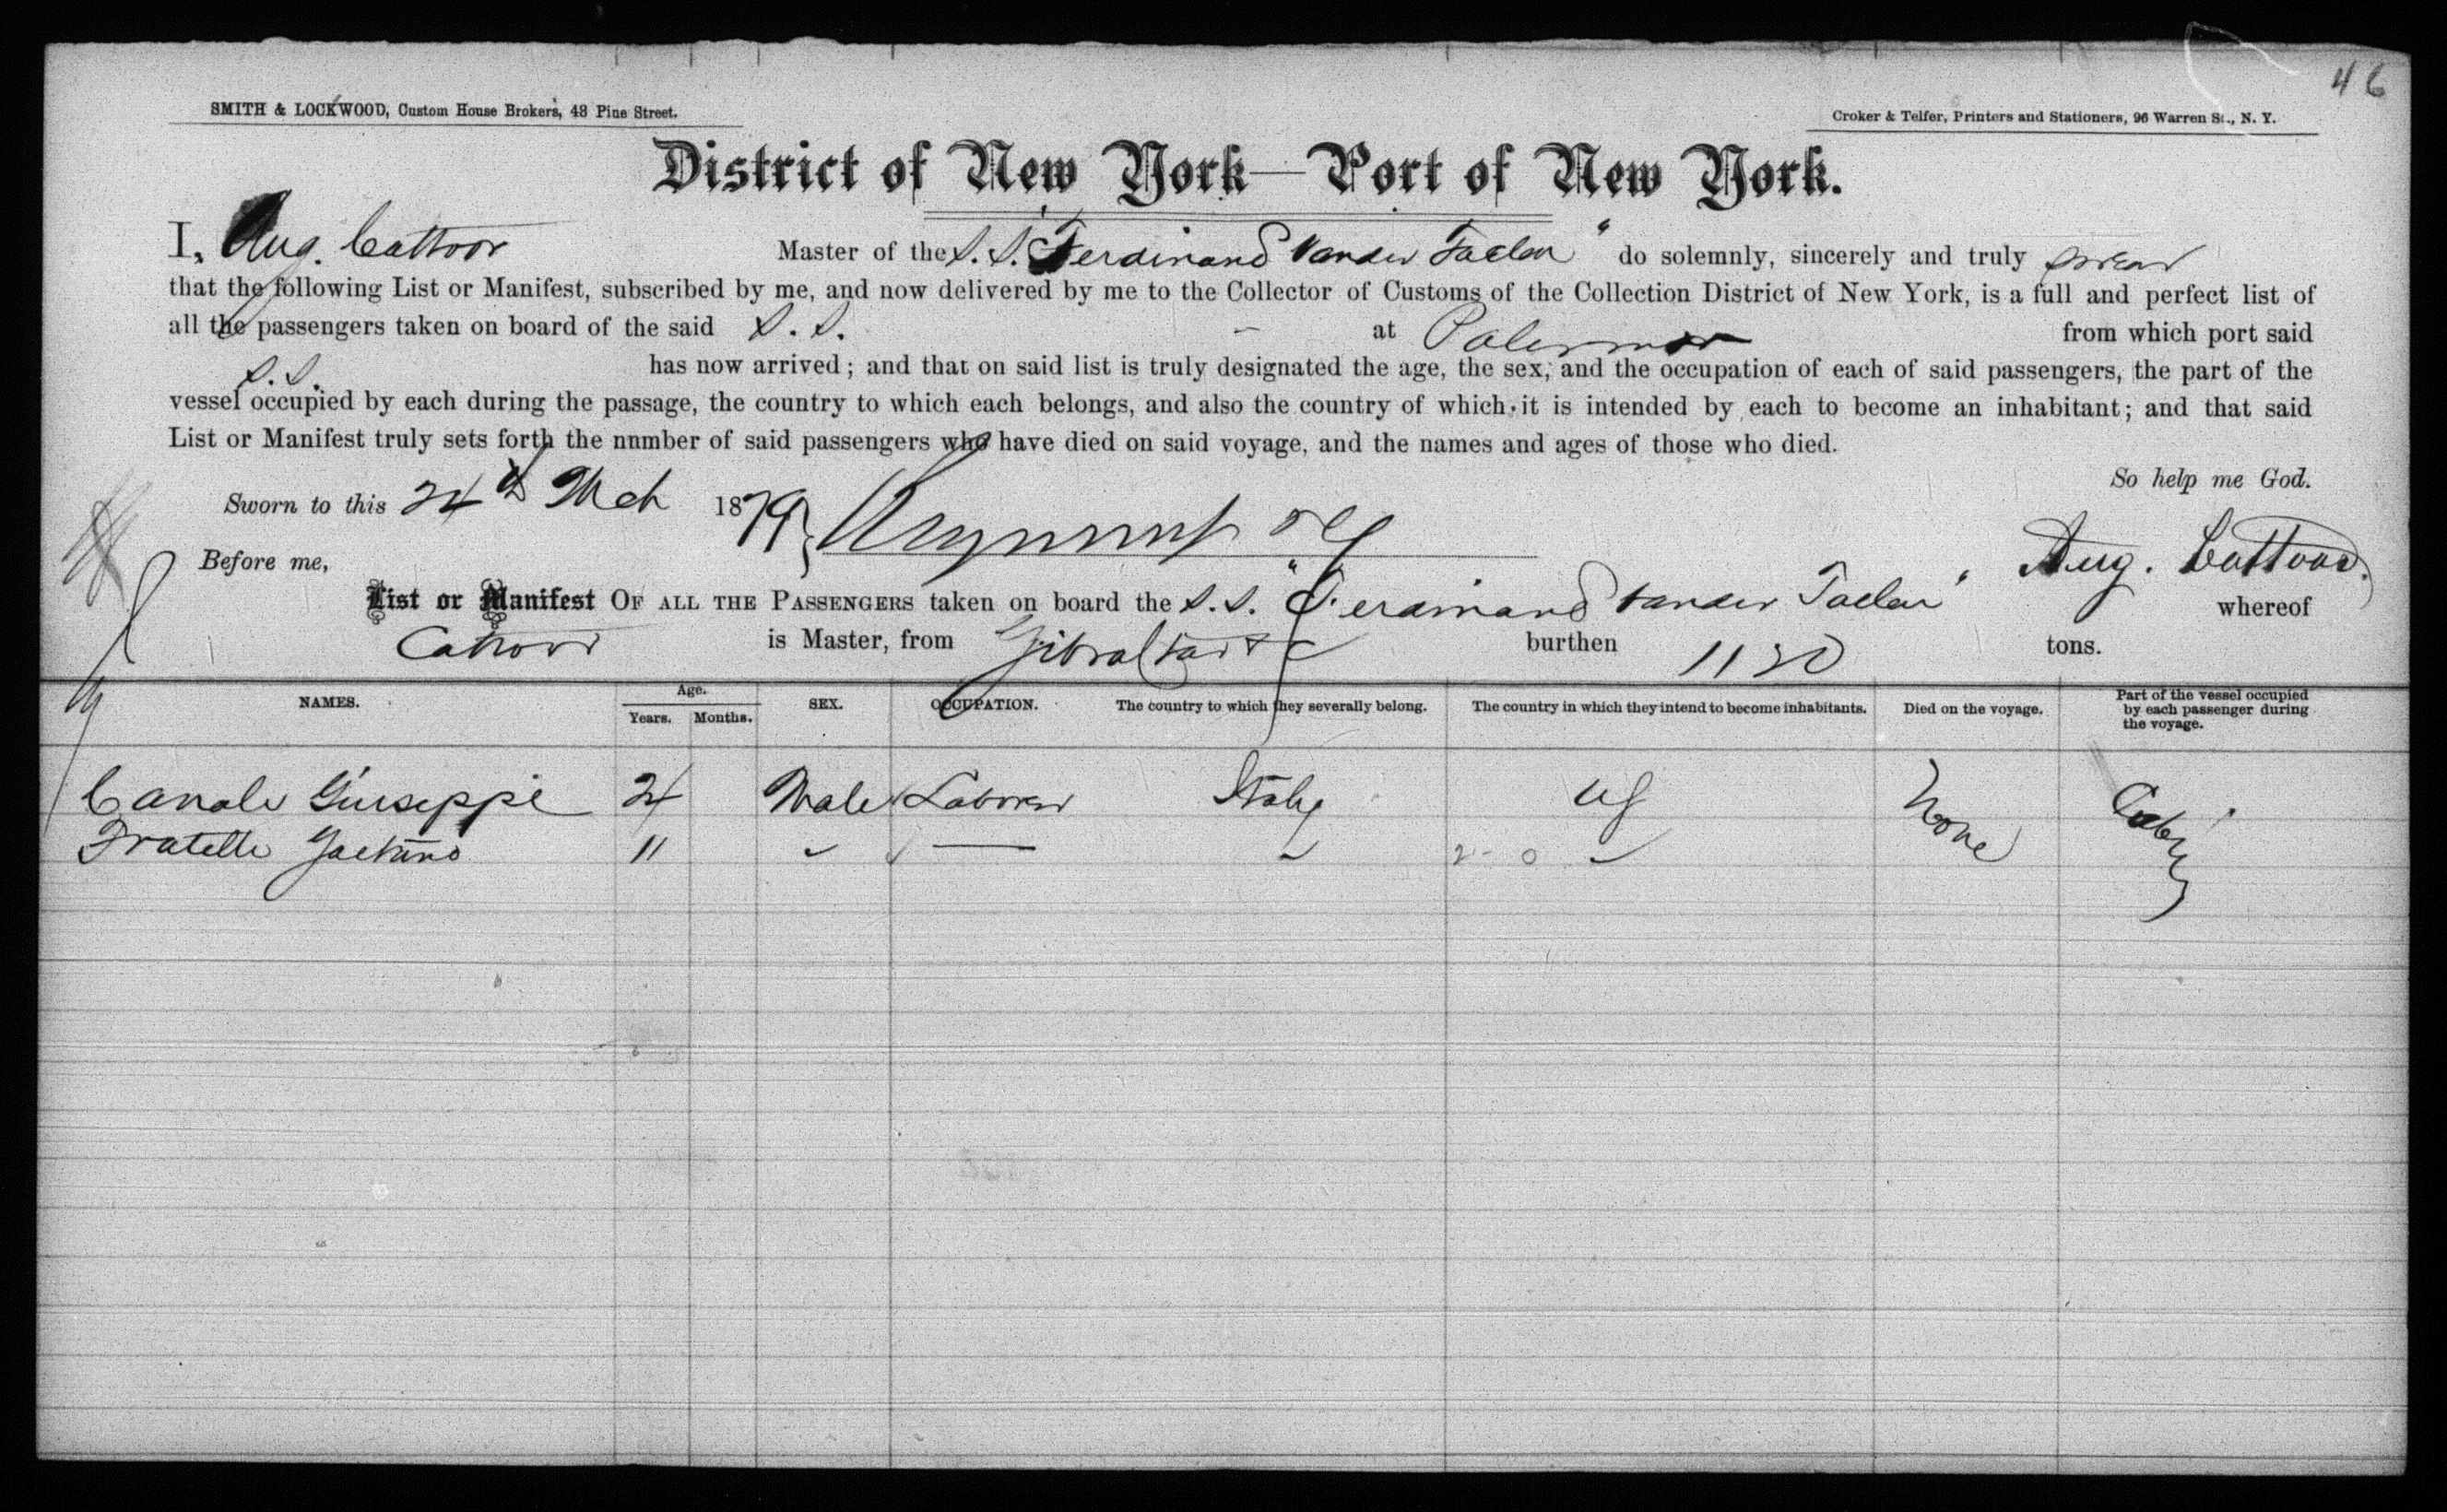 46
SMITH & LOCKWOOD, Custom House Brokers, 48 Pine Street.
Croker & Telfer, Printers and Stationers, 96 Warren St., N. Y.
District of New York—Port of New York.
I, Aug. Cattoor Master of the S.S. "Ferdinand Vander Taelen" do solemnly, sincerely and truly swear
that the following List or Manifest, subscribed by me, and now delivered by me to the Collector of Customs of the Collection District of New York, is a full and perfect list of
all the passengers taken on board of the said S.S. at Palermo from which port said
S.S. has now arrived; and that on said list is truly designated the age, the sex, and the occupation of each of said passengers, the part of the
vessel occupied by each during the passage, the country to which each belongs, and also the country of which it is intended by each to become an inhabitant; and that said
List or Manifest truly sets forth the nnmber of said passengers who have died on said voyage, and the names and ages of those who died.
So help me God.
Sworn to this 24th Mch 1879
Before me, Aug. Cattoor
List or Manifest OF ALL THE PASSENGERS taken on board the S.S. "Ferdinand Vander Taelen" whereof
Cattoor is Master, from Gibraltar &c burthen 1120 tons.
NAMES. Age. Years. Months. SEX. OCCUPATION. The country to which they severally belong. The country in which they intend to become inhabitants. Died on the voyage. Part of the vessel occupied by each passenger during the voyage.
Canale Giuseppe 24 Male Laborer Italy US None Cabin
Fratelli Gaetano 11 2 - 0